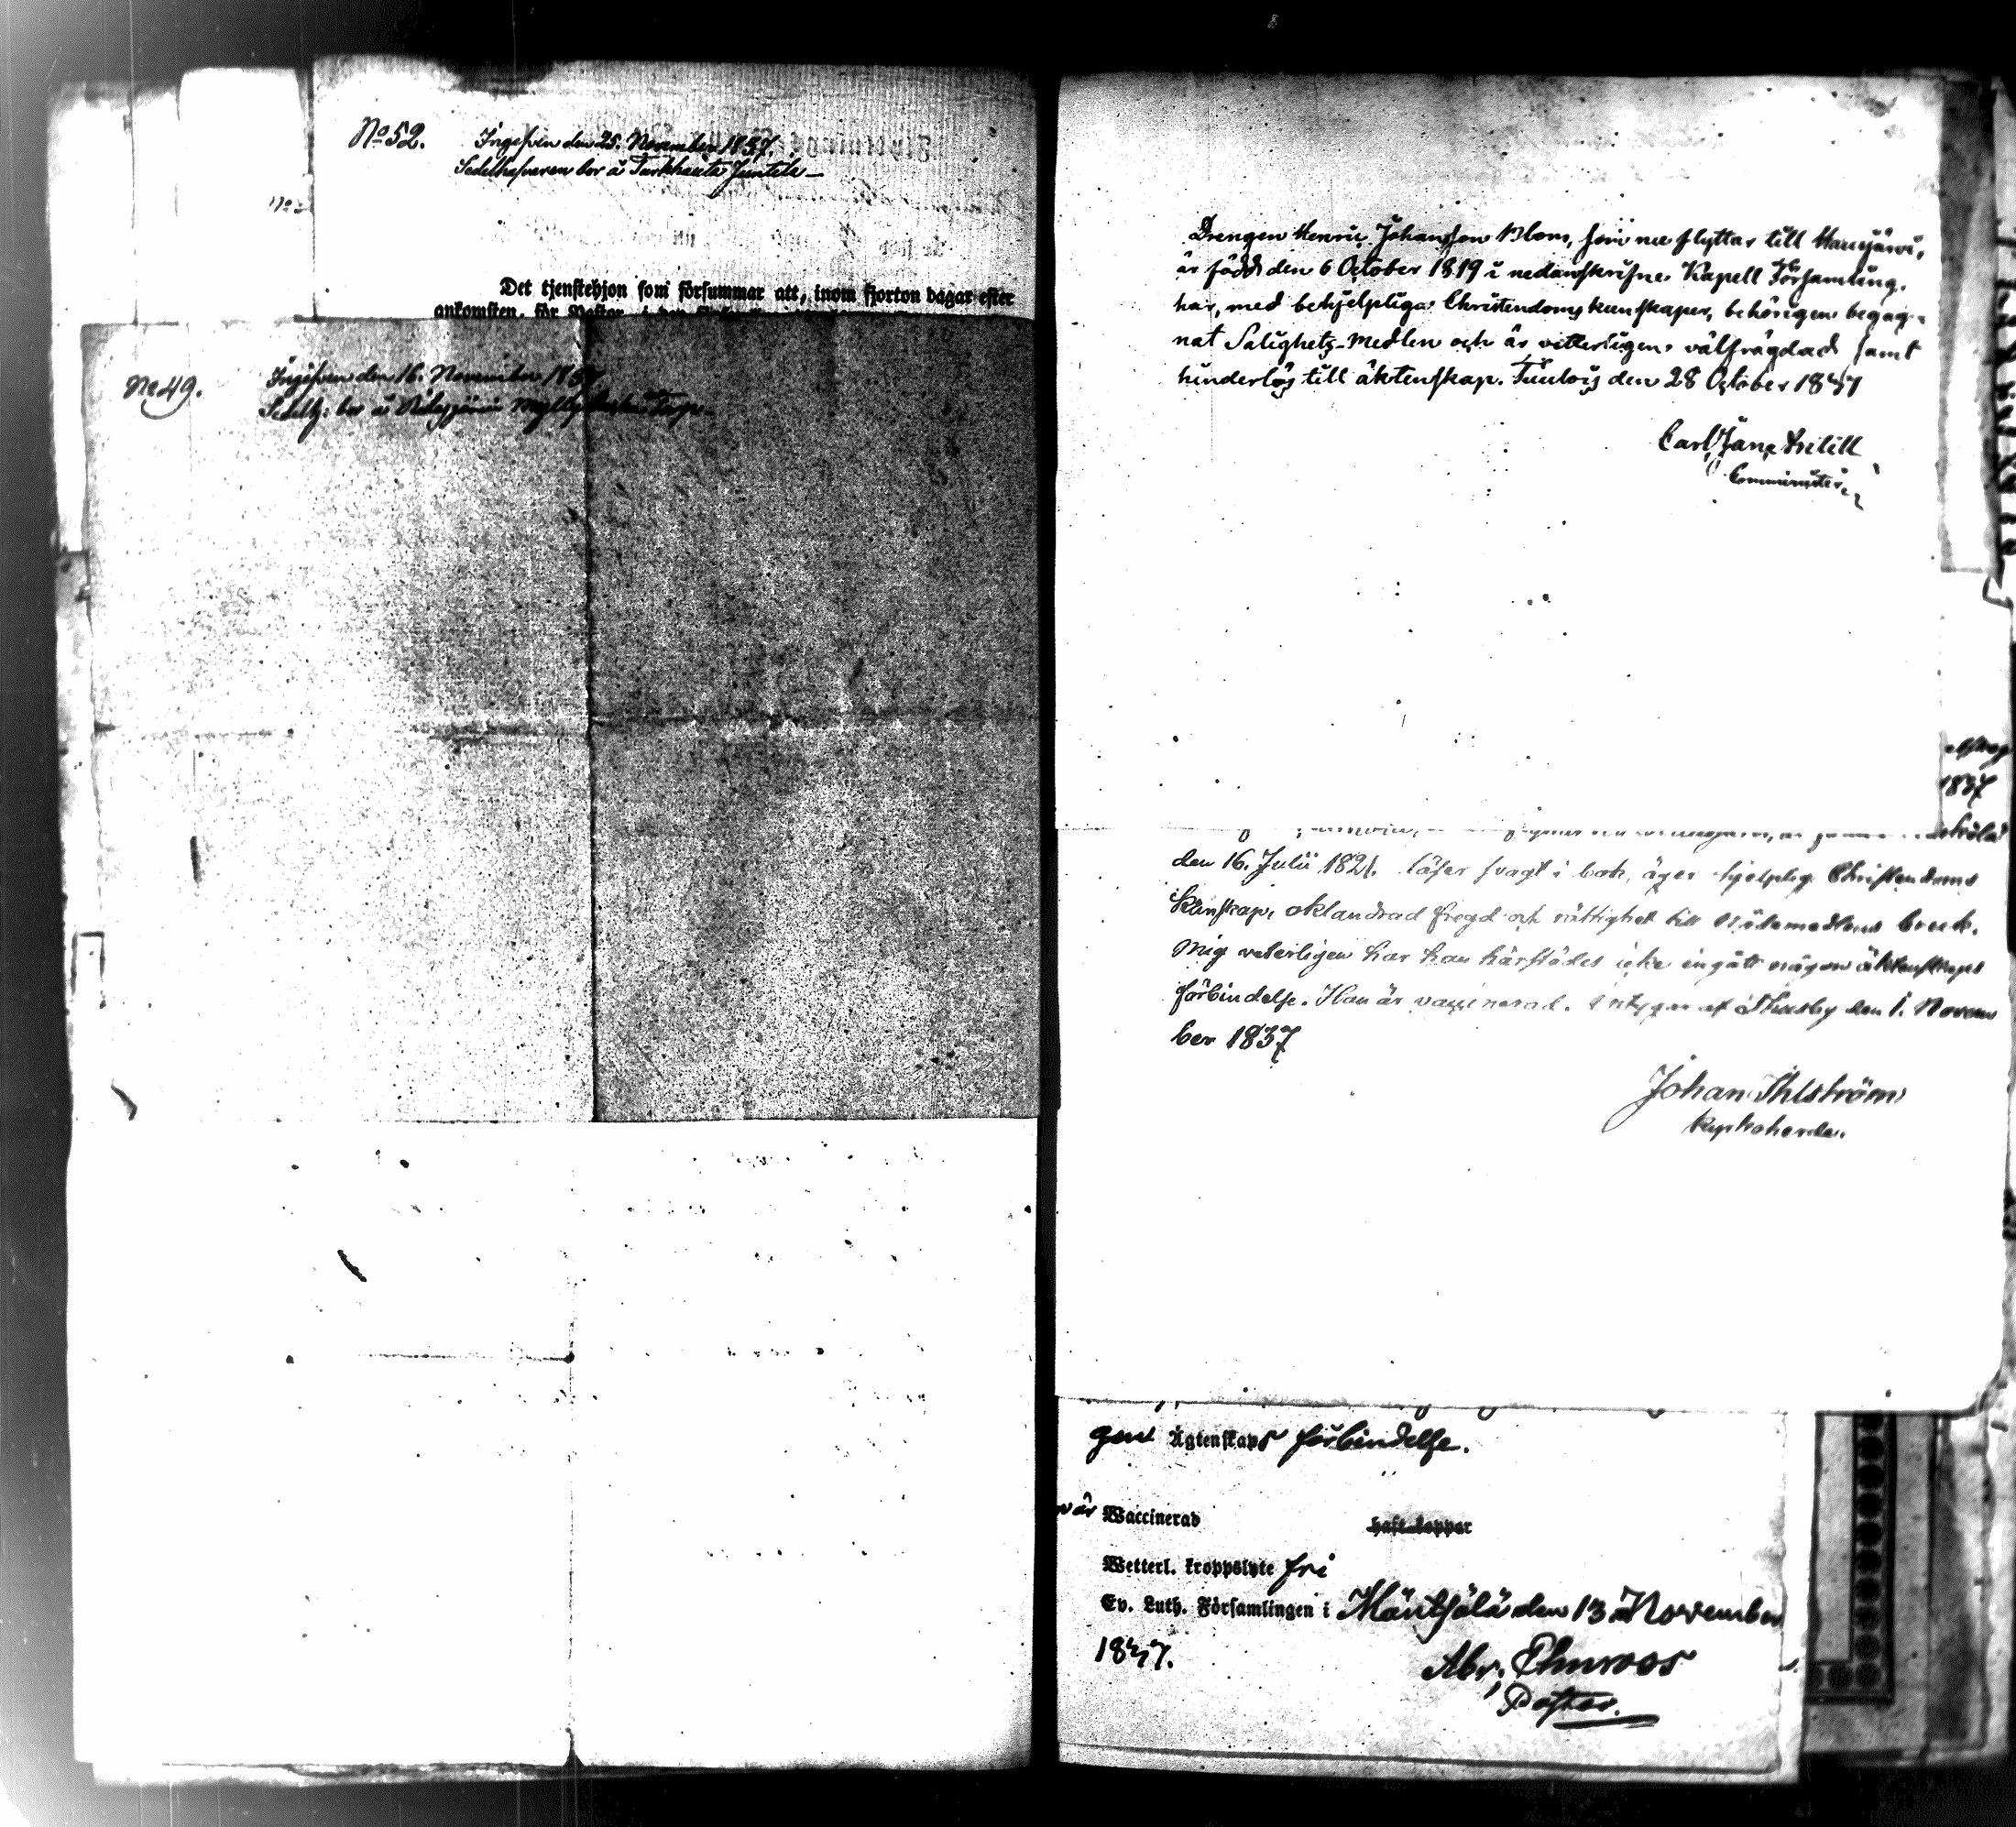 No 52. Ingifven den 25. November 1837.
Sedelhafvaren bor å Turkhauta Juntila
No
Det tjenstehjon som försummar att, inom fjorton dagar efter
ankomsten, för Pastor
No 49. Ingifven den 16. November 1837
Sedelh: bor å Torp
Drengen Henric Johansson Blom, som nu flyttar till Hausjärvi,
är född den 6 October 1819 i nedanskrifne Kapell Församling,
har, med behjelplige Christendoms kunskaper, behörigen begag-
nat Salighets-Medlen och är vitterligen välfrägdad samt
hinderlös till äktenskap. Tuulois den 28 October 1837
Carl Jans
Comminister
1837
den 16. Julii 1821. läser svagt i bok, äger hjelplig Christendoms
kunskap, oklandrad fregd och rättighet till Nådemedlens bruk.
Mig veterligen har han härstädes icke ingått någon äktenskaps
förbindelse. Han är vaccinerad. Intygar af Thusby den 1. Novem
ber 1837
Johan Ihlström
Kyrkoherde.
gen Ägtenskaps förbindelse.
är Waccinerad haft koppor
Wetterl. kroppslyte fri
Ev. Luth. Församlingen i Mäntsälä den 13 November
1837.
Abr. Ehnroos
Pastor.